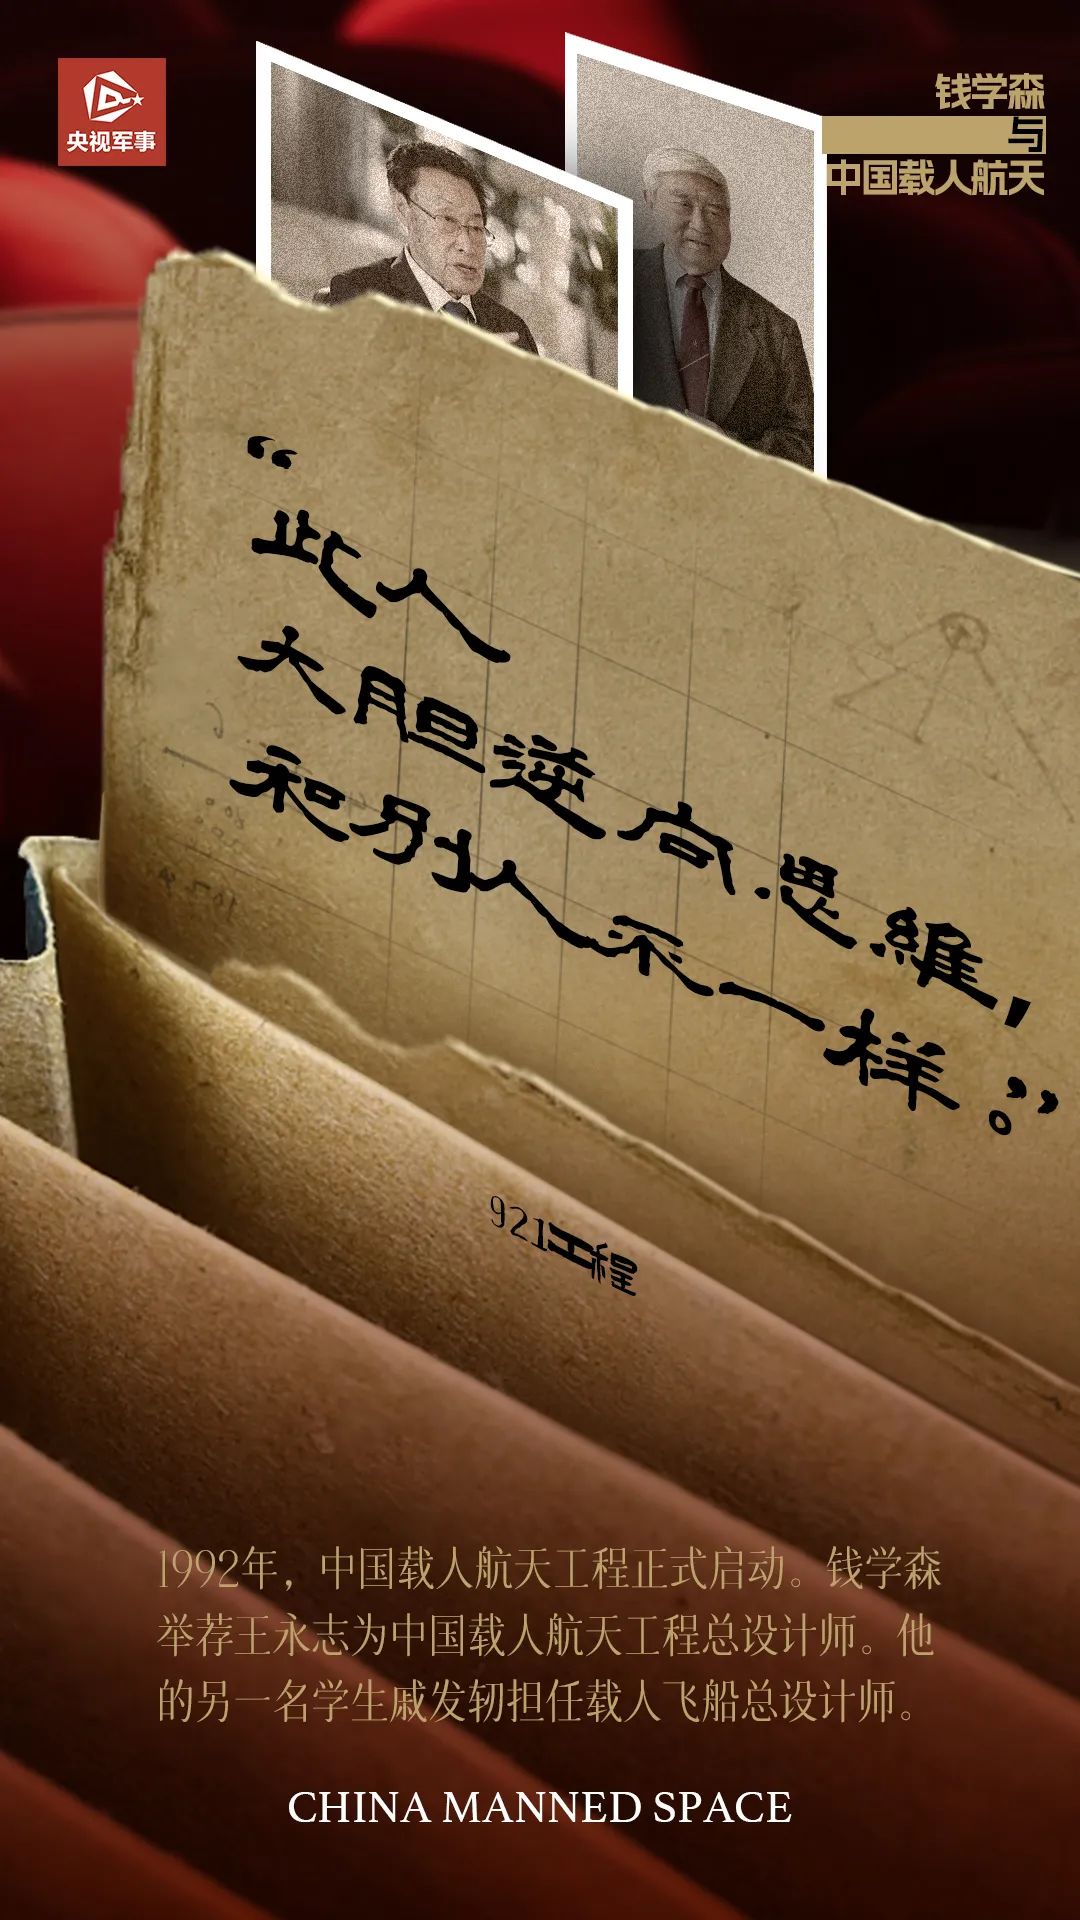 央视军事
钱学森
与
中国载人航天
“
此人
大胆逆向思维，
和别人不一样。”
921工程
1992年，中国载人航天工程正式启动。钱学森
举荐王永志为中国载人航天工程总设计师。他
的另一名学生戚发轫担任载人飞船总设计师。
CHINA MANNED SPACE